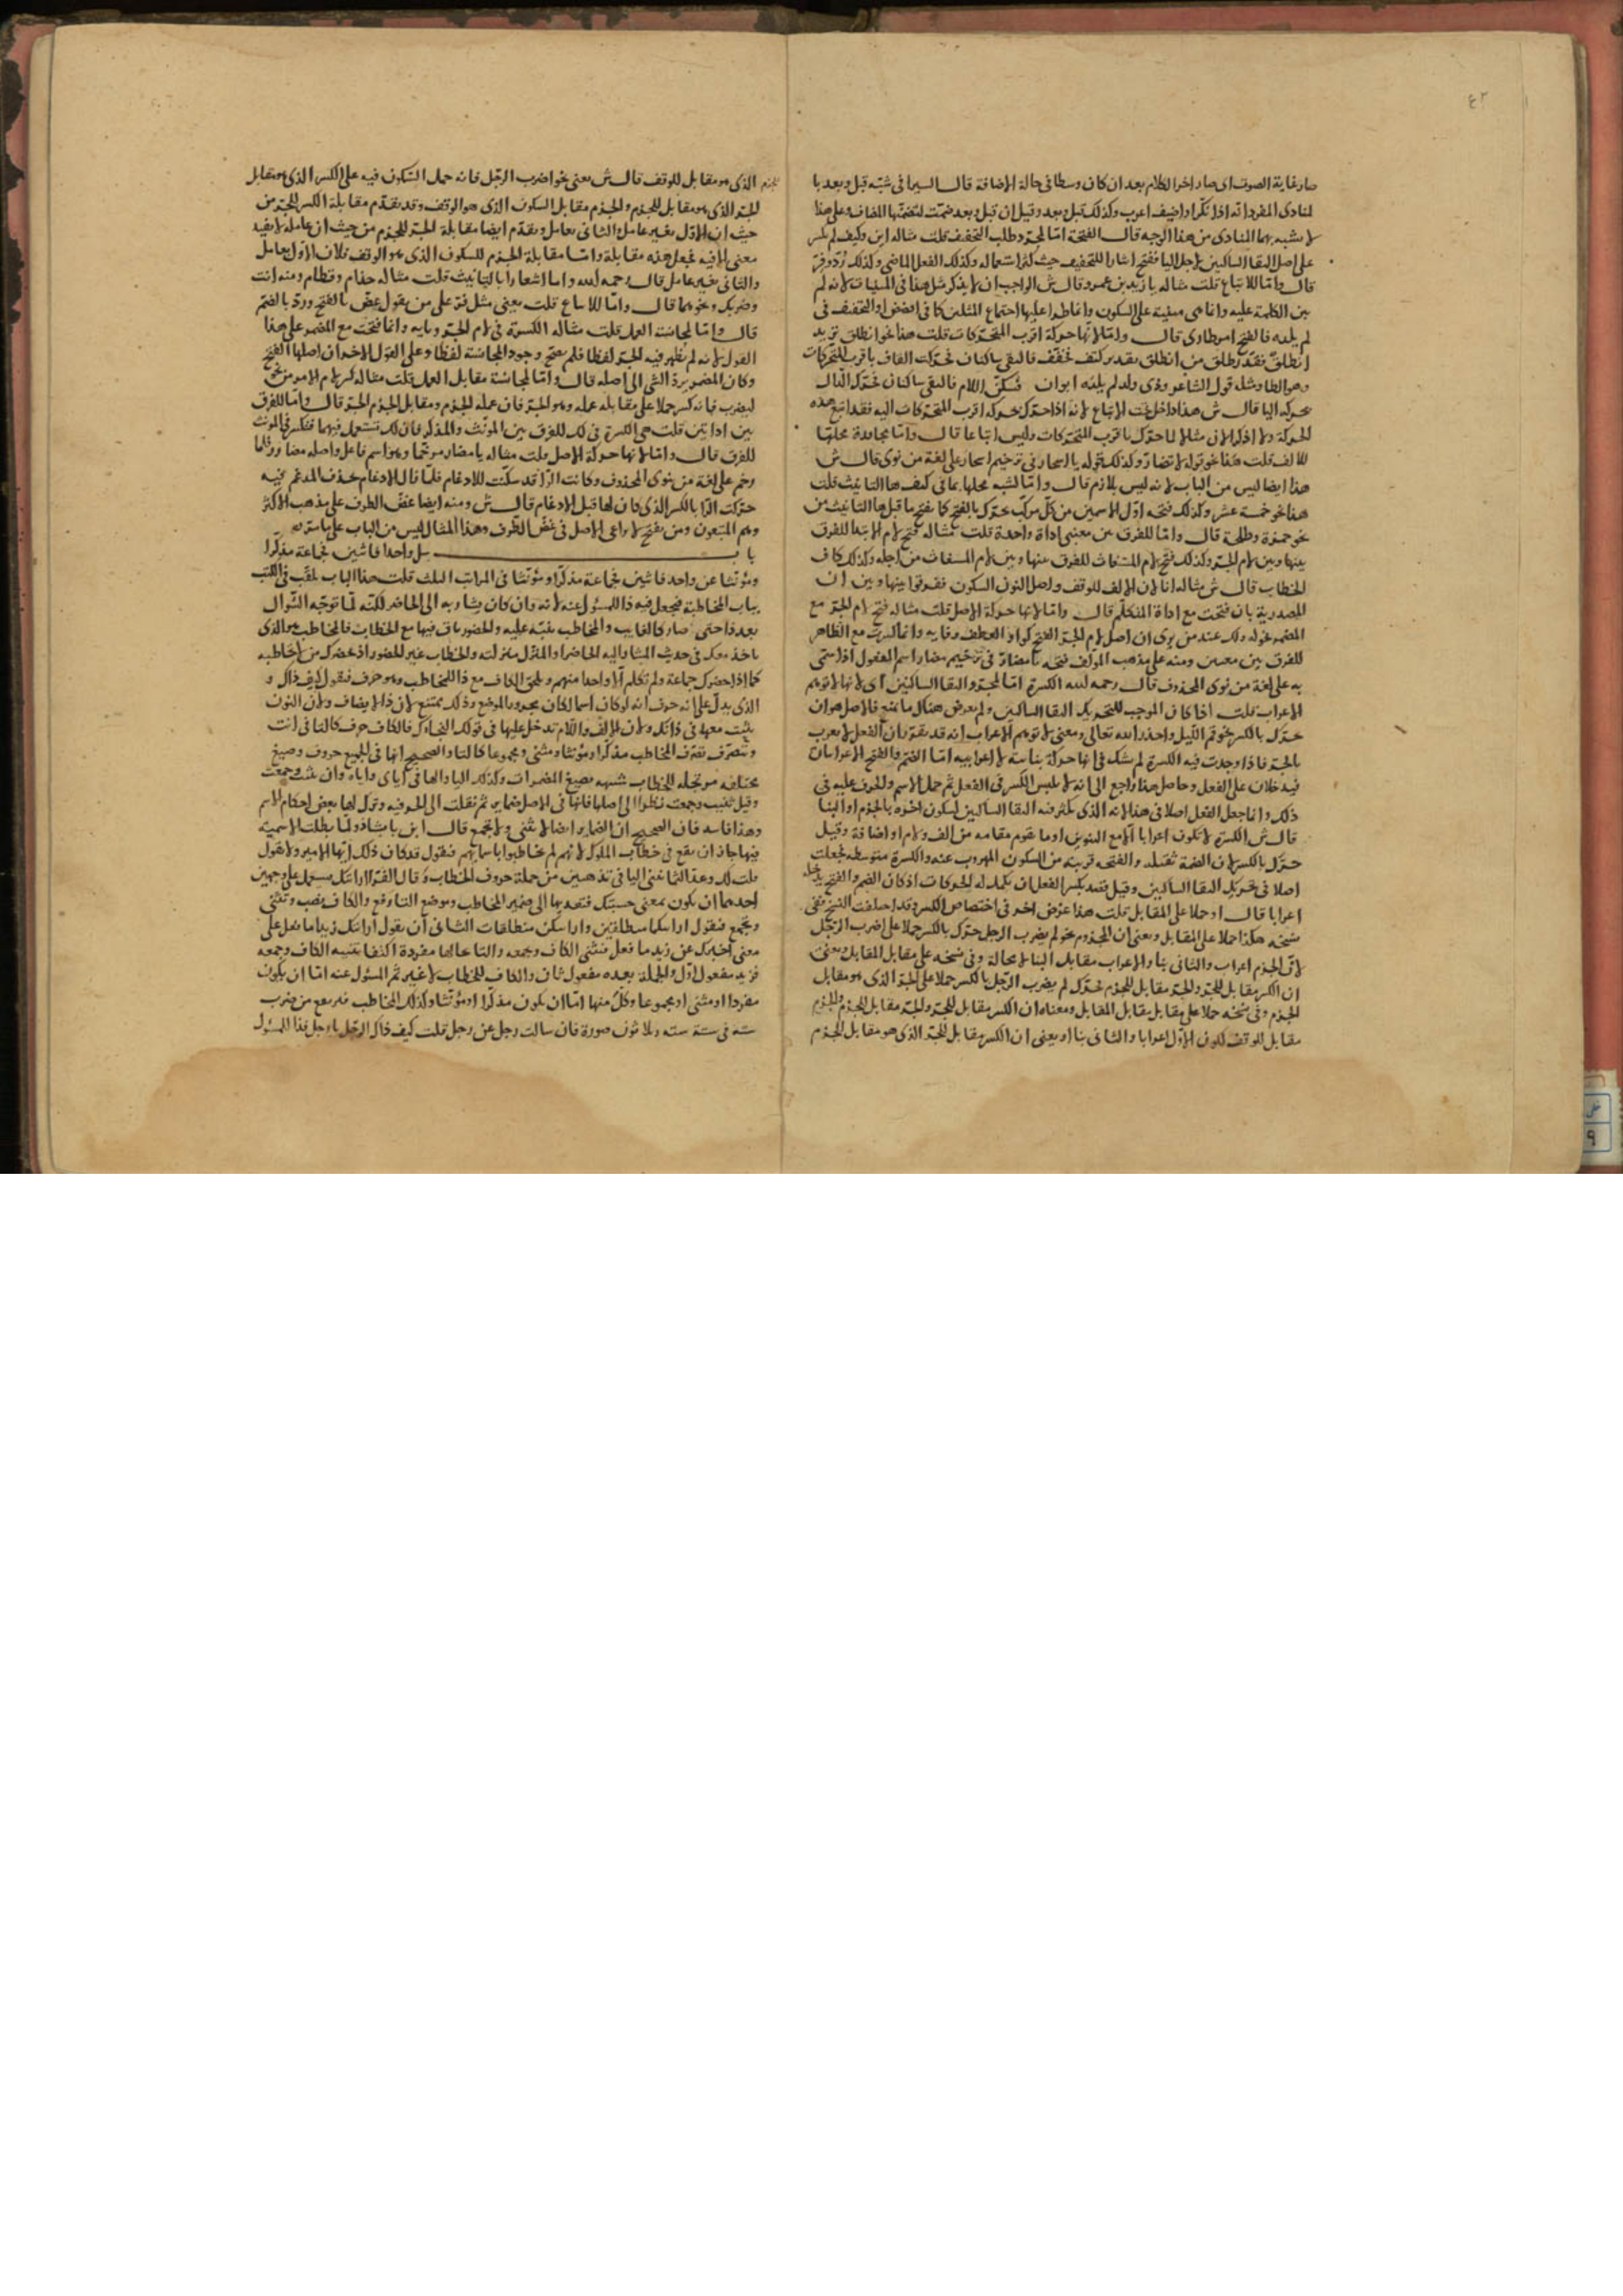 ٤٣
صار غاية الصوت اى صار اخر الكلام بعد ان كان وسطا فى حالة الاضافة قال السيرافى شبه قبل وبعد با
لمنادى المفرد انه اذا نكر او اضيف اعرب وكذلك قبل وبعد وقيل ان قبل وبعد ضمنت لتضمنها المضاف وعلى هذا
لا يشبه بهما المنادى من هذا الوجه قال الفتحة اما لمجرد طلب التخفيف قلت مثاله اين وكيف لم يكسر
على اصل التقا الساكنين لاجل اليا ففتح ايثارا للتخفيف حيث كثر استعماله وكذلك الفعل الماضى وكذلك رد وفر
قال واما للاتباع قلت مثاله يا زيد بن عمرو قال ش الواجب ان لا يذكر مثل هذا فى المبنيات لانه لم
بين الكلمة عليه وانما هى مبنية على السكون وانما طرا عليها اجتماع المثلين كما فى اغضض او التخفيف فى
لم يلده فالفتح امر طارى قال واما لانها حركة اقرب المتحركات قلت هذا نحو انطلق تريد
انطلق فقد طلق من انطلق بقدر كتف فخفف فالتقى ساكنان فحركت القاف باقرب المتحركات
وهو الطا ومثله قول الشاعر وذى ولد لم يلده ابوان فسكن اللام فالتقى ساكنان فحرك الدال
بحركة اليا قال ش هذا داخل تحت الاتباع لانه اذا حرك بحركة اقرب المتحركات اليه فقد اتبع هذه
الحركة
للالف قلت هذا نحو قوله لا تضار وكذلك قوله يا اسحار فى ترخيم اسحار على لغة من نوى قال ش
هذا ايضا ليس من الباب لانه ليس بلازم قال واما لشبه محلها بما فى كنف ها التانيث قلت
هذا نحو خمسة عشر وكذلك فتحه اول الاسمين من كل مركب حرك بالفتح كما يفتح ما قبل ها التانيث من
نحو حمزة وطلحة قال واما للفرق بين معنى اداة واحدة قلت مثاله فتح لام الابتدا للفرق
بينها وبين لام الجر وكذلك فتح لام المستغاث للفرق بينها وبين لام المستغاث من اجله وكذلك كاف
الخطاب قال ش مثاله انا لان الالف للوقف واصل النون السكون ففرقوا بينها وبين ان
المصدرية بان فتحت مع اداة المتكلم قال واما لانها حركة الاصل قلت مثاله فتح لام الجر مع
المضمر
للفرق بين معنيين ومنه على مذهب المولف فتحه يا مضار فى ترخيم مضار اسم المفعول اذا سمى
به على لغة من نوى المحذوف قال رحمه الله الكسرة اما لمجرد التقا الساكنين اى لانها لا توهم
الاعراب قلت اذا كان الموجب للتحريك التقا الساكنين ولم يعرض هنالك ما يمنع فالاصل هو ان
حرك بالكسر نحو قم الليل واحذر الله تعالى ومعنى لا توهم الاعراب انه قد تقرر ان الفعل لا يعرب
بالجر فاذا وجدت فيه الكسرة لم يشك فى انها حركة بنائية لا اعرابيه اما الضم والفتح الاعرابيان
فيدخلان على الفعل وحاصل هذا راجع الى انه لا يلبس الكسر فى الفعل ثم حمل الاسم والحرف عليه فى
ذلك وانما جعل الفعل اصلا فى هذا لانه الذى يكثر فيه التقا الساكنين لسكون اخره بالجزم او البنا
قال ش الكسرة لا تكون اعرابا الا مع التنوين او ما يقوم مقامه من الف ولام او اضافة وقيل
حرك بالكسر لان الضمة ثقيلة والفتحه قريبة من السكون المهروب عنه والكسرة متوسطه فجعلت
اصلا فى تحريك التقا الساكنين وقيل
اعرابا قال او حملا على المقابل قلت هذا غرض اخر فى اختصاص الكسر وقد اختلفت النسخ ففى
نسخه هكذا حملا على المقابل ويعنى ان المجزوم نحو لم يضرب الرجل حرك بالكسر حملا على اضرب الرجل
لان الجزم اعراب والثانى بنا والاعراب مقابل البنا لا محالة وفى نسخه على مقابل المقابل يعنى
ان الكسر مقابل للجر والجر مقابل للجزم فحرك لم يضرب الرجل بالكسر حملا على الجر الذى هو مقابل
الجزم وفى نسخه حملا على مقابل مقابل المقابل ومعناه ان الكسر مقابل للجر والجر مقابل للجزم والجزم
مقابل للوقف لكون الاول اعرابا والثانى بنا او يعنى ان الكسر مقابل للجر الذى هو مقابل للجزم
الذى هو مقابل للوقف قال ش يعنى نحو اضرب الرجل فانه حمل السكون فيه على الكسر الذى هو مقابل
للجر الذى هو مقابل للجزم والجزم مقابل السكون الذى هو الوقف وقد تقدم مقابلة الكسر للجر من
حيث ان الاول بغير عامل والثانى بعامل وتقدم ايضا مقابلة الجر للجزم من حيث ان عامله لا يفيد
معنى الا فيه فجعل هذه مقابلة واما مقابلة الجزم للسكون الذى هو الوقف فلان الاول بعامل
والثانى بغير عامل قال رحمه الله واما اشعارا بالتانيث قلت مثاله حذام وقطام ومنه انت
وضربك ونحوهما قال واما للاتباع قلت يعنى مثل فر على من يقول عض بالفتح ورد بالضم
قال واما لمجانسة العمل قلت مثاله الكسرة فى لام الجر وبايه وانما فتحت مع المضمر على هذا
القول لانه لم يظهر فيه الجر لفظا فلم يصح وجود المجانسة لفظا وعلى القول الاخر ان اصلها الفتح
وكان المضمر يرد الشى الى اصله قال واما لمجانسة مقابل العمل قلت مثاله كسر لام الامر من نحو
ليضرب فانه كسر حملا على مقابله عمله وهو الجر فان عمله الجزم ومقابل الجزم الجر قال واما للفرق
بين اداتين قلت هى الكسرة فى لك للفرق بين المونث والمذكر فان لك تستعمل فيهما فتكسر فى المونث
للفرق قال واما لانها حركة الاصل قلت مثاله يا مضار مرخما وهو اسم فاعل واصله مضارر فلما
رخم على لغة من ينوى المحذوف وكانت الرا قد سكنت للادغام فلما زال الادغام بحذف المدغم فيه
حركت الرا بالكسر الذى كان لها قبل الادغام قال ش ومنه ايضا غض الطرف على مذهب الاكثر
وهم المتبعون ومن يفتح لا يراعى الاصل فى غض الطرف وهذا المثال ليس من الباب على ما سترته
باب سل واحدا فاثنين فجماعة مذكرا
ومونثا عن واحد فاثنين فجماعة مذكرا ومونثا فى المراتب الثلث قلت هذا الباب لقب فى الكتب
بباب المخاطبة فيجعل فيه ذا للمسئول عنه لانه وان كان يشار به الى الحاضر لكنه لما توجه السوال
بعد ذا حتى صار كالغايب والمخاطب ينبه عليه والحضور باق فيها مع الخطاب فالمخاطب هو الذى
ياخذ معك فى حديث المشار اليه الحاضر او المنزل منزلته والخطاب غير الحضور اذ يحضرك من لا تخاطبه
كما اذا حضرك جماعة ولم تكلم الا واحدا منهم ويلحق الكاف مع ذا للمخاطب وهو حرف فتقول كيف ذاك و
الذى يدل على انه حرف انه لو كان اسما لكان مجرور الموضع وذلك يمتنع لان ذا لا يضاف ولان النون
يثبت معها فى ذانك ولان الالف واللام تدخل عليها فى قولك النجاءك فالكاف حرف كالتا فى انت
وتتصرف تصرف المخاطب مذكرا ومونثا ومثنى ومجموعا كالتا والصحيح انها فى الجميع حروف وصيغ
مختلفة مرتجله للخطاب شبهه بصيغ المضمرات وكذلك اليا والها فى اياى واياه وان ثنيت وجمعت
وقيل ثنيت وجمعت نظرا الى اصلها فانها فى الاصل ضماير ثم نقلت الى الحرفيه وترك لها بعض احكام الاسم
وهذا فاسد فان الصحيح ان الضماير ايضا لا تثنى ولا تجمع قال ابن بابشاذ ولما بطلت الاسمية
فيها جاز ان يقع فى خطاب الملوك لانهم لم يخاطبوا باسمائهم فتقول قد كان ذلك ايها الامير ولا تقول
قلت لك
احدهما ان يكون بمعنى حسبتك فتعديها الى ضمير المخاطب وموضع التا رفع والكاف نصب وتثنى
وتجمع فتقول ارايتكما منطلقين وارايتكن منطلقات الثانى ان يقول ارايتك زيدا ما فعل على
معنى اخبرك عن زيد ما فعل فتثنى الكاف وتجمعه والتا بحالها مفردة اكتفا بتثنيه الكاف وجمعه
فزيد مفعول اول والجملة بعده مفعول ثان والكاف للخطاب لا غير ثم المسئول عنه اما ان يكون
مفردا او مثنى او مجموعا وكل منها اما ان يكون مذكرا او مونثا وكذلك المخاطب فترتفع من ضرب
ستة فى ستة ستة وثلاثون صورة فان سالت رجل عن رجل قلت كيف ذاك الرجل يا رجل فذا للمسئول